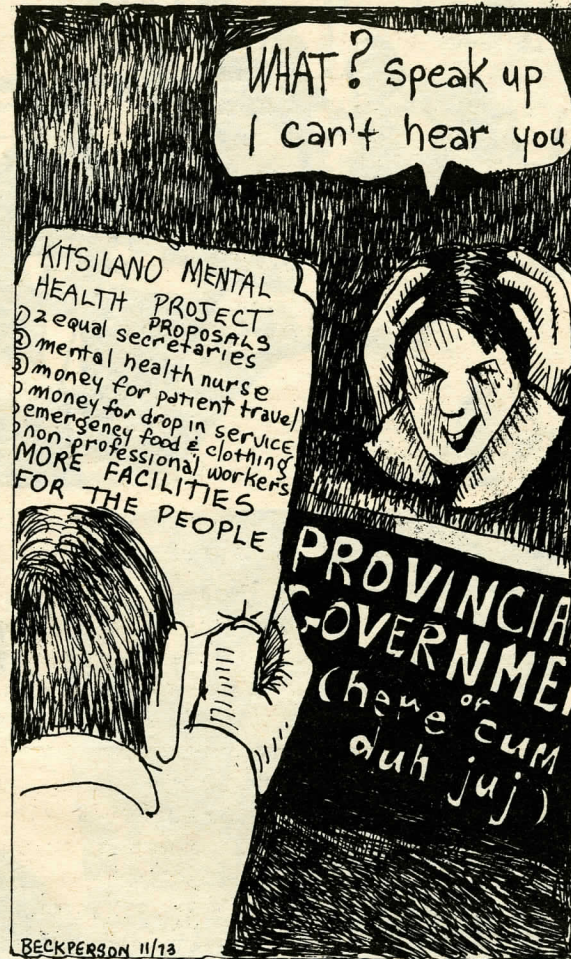 WHAT? speak up
I can't hear you
KITSILANO MENTAL
HEALTH PROJECT
PROPOSALS
① 2 equal secretaries
② mental health nurse
③ money for patient travel
money for drop in service
emergency food & clothing
non-professional workers
MORE FACILITIES
FOR THE PEOPLE
PROVINCIA
GOVERNME
or
(here cum
duh juj)
BECKPERSON 11/73